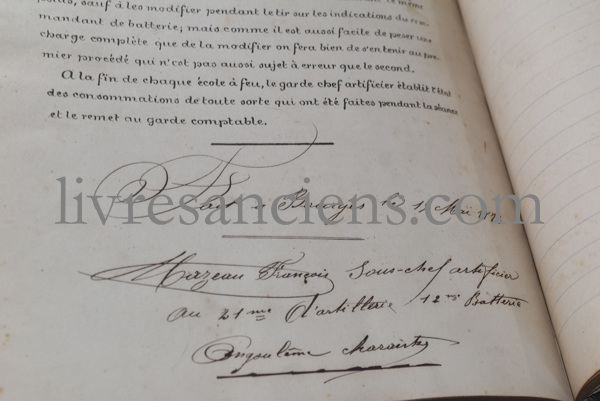 poids, sauf à les modifier pendant le tir sur les indications du com-
mandant de batterie; mais comme il est aussi facile de peser une
charge complète que de la modifier on fera bien de s'en tenir au pre-
mier procédé qui n'est pas aussi sujet à erreur que le second.
A la fin de chaque école à feu, le garde chef artificier établit l'état
des consommations de toute sorte qui ont été faites pendant la séance
et le remet au garde comptable.
Fait à Bourges le 1 Mai
livresanciens.com
Mazeau François Sous-chef artificier
au 21me d'artillerie 12me Batterie
Angoulême Charente